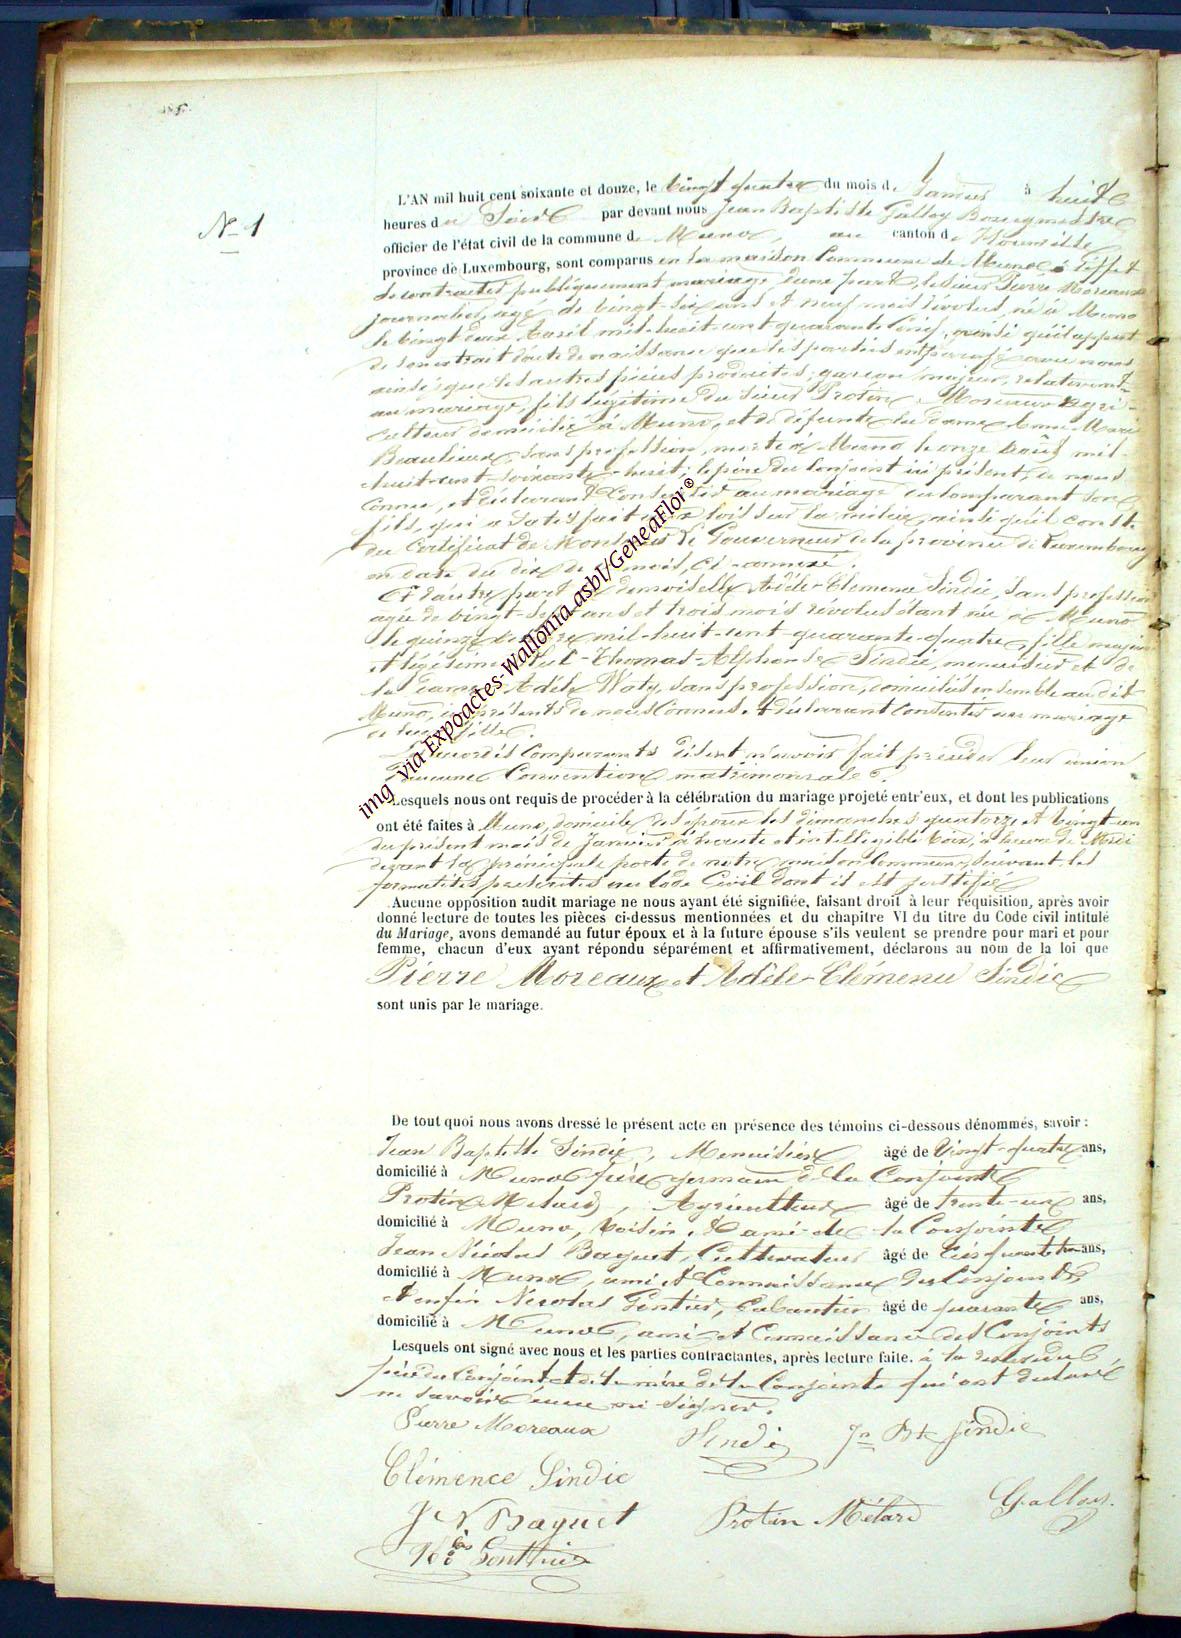 N° 1
L'AN mil huit cent soixante et douze, le vingt quatre du mois de Janvier à huit
heures du Soir par devant nous Jean Baptiste Galloy Bourgmestre
officier de l'état civil de la commune de Muno, au canton de Florenville
province de Luxembourg, sont comparus en la maison Commune de Muno à l'effet
de contracter publiquement mariage d'une part, le sieur Pierre Moreaux
journalier, agé de vingt-six ans et neuf mois révolus, né à Muno
le vingt deux Avril mil-huit-cent-quarante cinq, ainsi qu'il appert
de son extrait d'acte de naissance que les parties ont paraphé avec nous
ainsi que les autres pièces produites; garçon majeur, relativement
au mariage, fils légitime du sieur Protin Moreaux Agri-
culteur domicilié à Muno, et de défunte la dame Anne-Marie
Beaulieux, sans profession, morte à Muno le onze Août mil-
huit-cent-soixante-huit; le père du Conjoint ici présent, de nous
Connu, et déclarant Consentir au mariage du Comparant son
fils, qui a satisfait aux lois sur la milice, ainsi qu'il conste
du Certificat de Monsieur le Gouverneur de la province de Luxembourg
en date du dix de ce mois, ci-annexé.
Et d'autre part la demoiselle Adèle-Clémence Sindic, sans profession
agée de vingt-sept ans et trois mois révolus étant née à Muno
le quinze Octobre mil-huit-cent-quarante-quatre, fille majeure
et légitime de Thomas-Alphonse Sindic, menuisier et de
la dame Adèle Waty, sans profession, domiciliés ensemble au dit
Muno, ici présents de nous Connus et déclarant Consentir au mariage
de leur fille.
Lesdits Comparants disent n'avoir fait précéder leur union
d'aucune Convention matrimoniale.
Lesquels nous ont requis de procéder à la célébration du mariage projeté entr'eux, et dont les publications
ont été faites à Muno, domicile des époux les dimanches quatorze et vingt-un
du présent mois de Janvier à haute et intelligible voix, à heure de Midi
devant la principale porte de notre maison Commune, suivant les
formalités prescrites au Code Civil dont il est justifié
Aucune opposition audit mariage ne nous ayant été signifiée, faisant droit à leur réquisition, après avoir
donné lecture de toutes les pièces ci-dessus mentionnées et du chapitre VI du titre du Code civil intitulé
du Mariage, avons demandé au futur époux et à la future épouse s'ils veulent se prendre pour mari et pour
femme, chacun d'eux ayant répondu séparément et affirmativement, déclarons au nom de la loi que
Pierre Moreaux et Adèle-Clémence Sindic
sont unis par le mariage.
De tout quoi nous avons dressé le présent acte en présence des témoins ci-dessous dénommés, savoir :
Jean Baptiste Sindic, Menuisier âgé de Vingt-quatre ans,
domicilié à Muno frère germain de la Conjointe
Protin Mélard, Agriculteur âgé de trente-un ans,
domicilié à Muno, Voisin et ami de la Conjointe
Jean Nicolas Baquet, Cultivateur âgé de Cinquante ans,
domicilié à Muno, ami et Connaissance des Conjoints
et enfin Nicolas Gontier, Cabaretier âgé de quarante ans,
domicilié à Muno, ami et Connaissance des Conjoints
Lesquels ont signé avec nous et les parties contractantes, après lecture faite. à la réserve du
père du Conjoint et de la mère de la Conjointe qui ont déclaré
ne savoir écrire ni signer.
Pierre Moreaux Sindic Jn Bte Sindic
Clémence Sindic
J N Baquet Protin Mélard Galloy
Nas Gonthier
img via Expoactes-Wallonia.asbl/GeneaFlor®